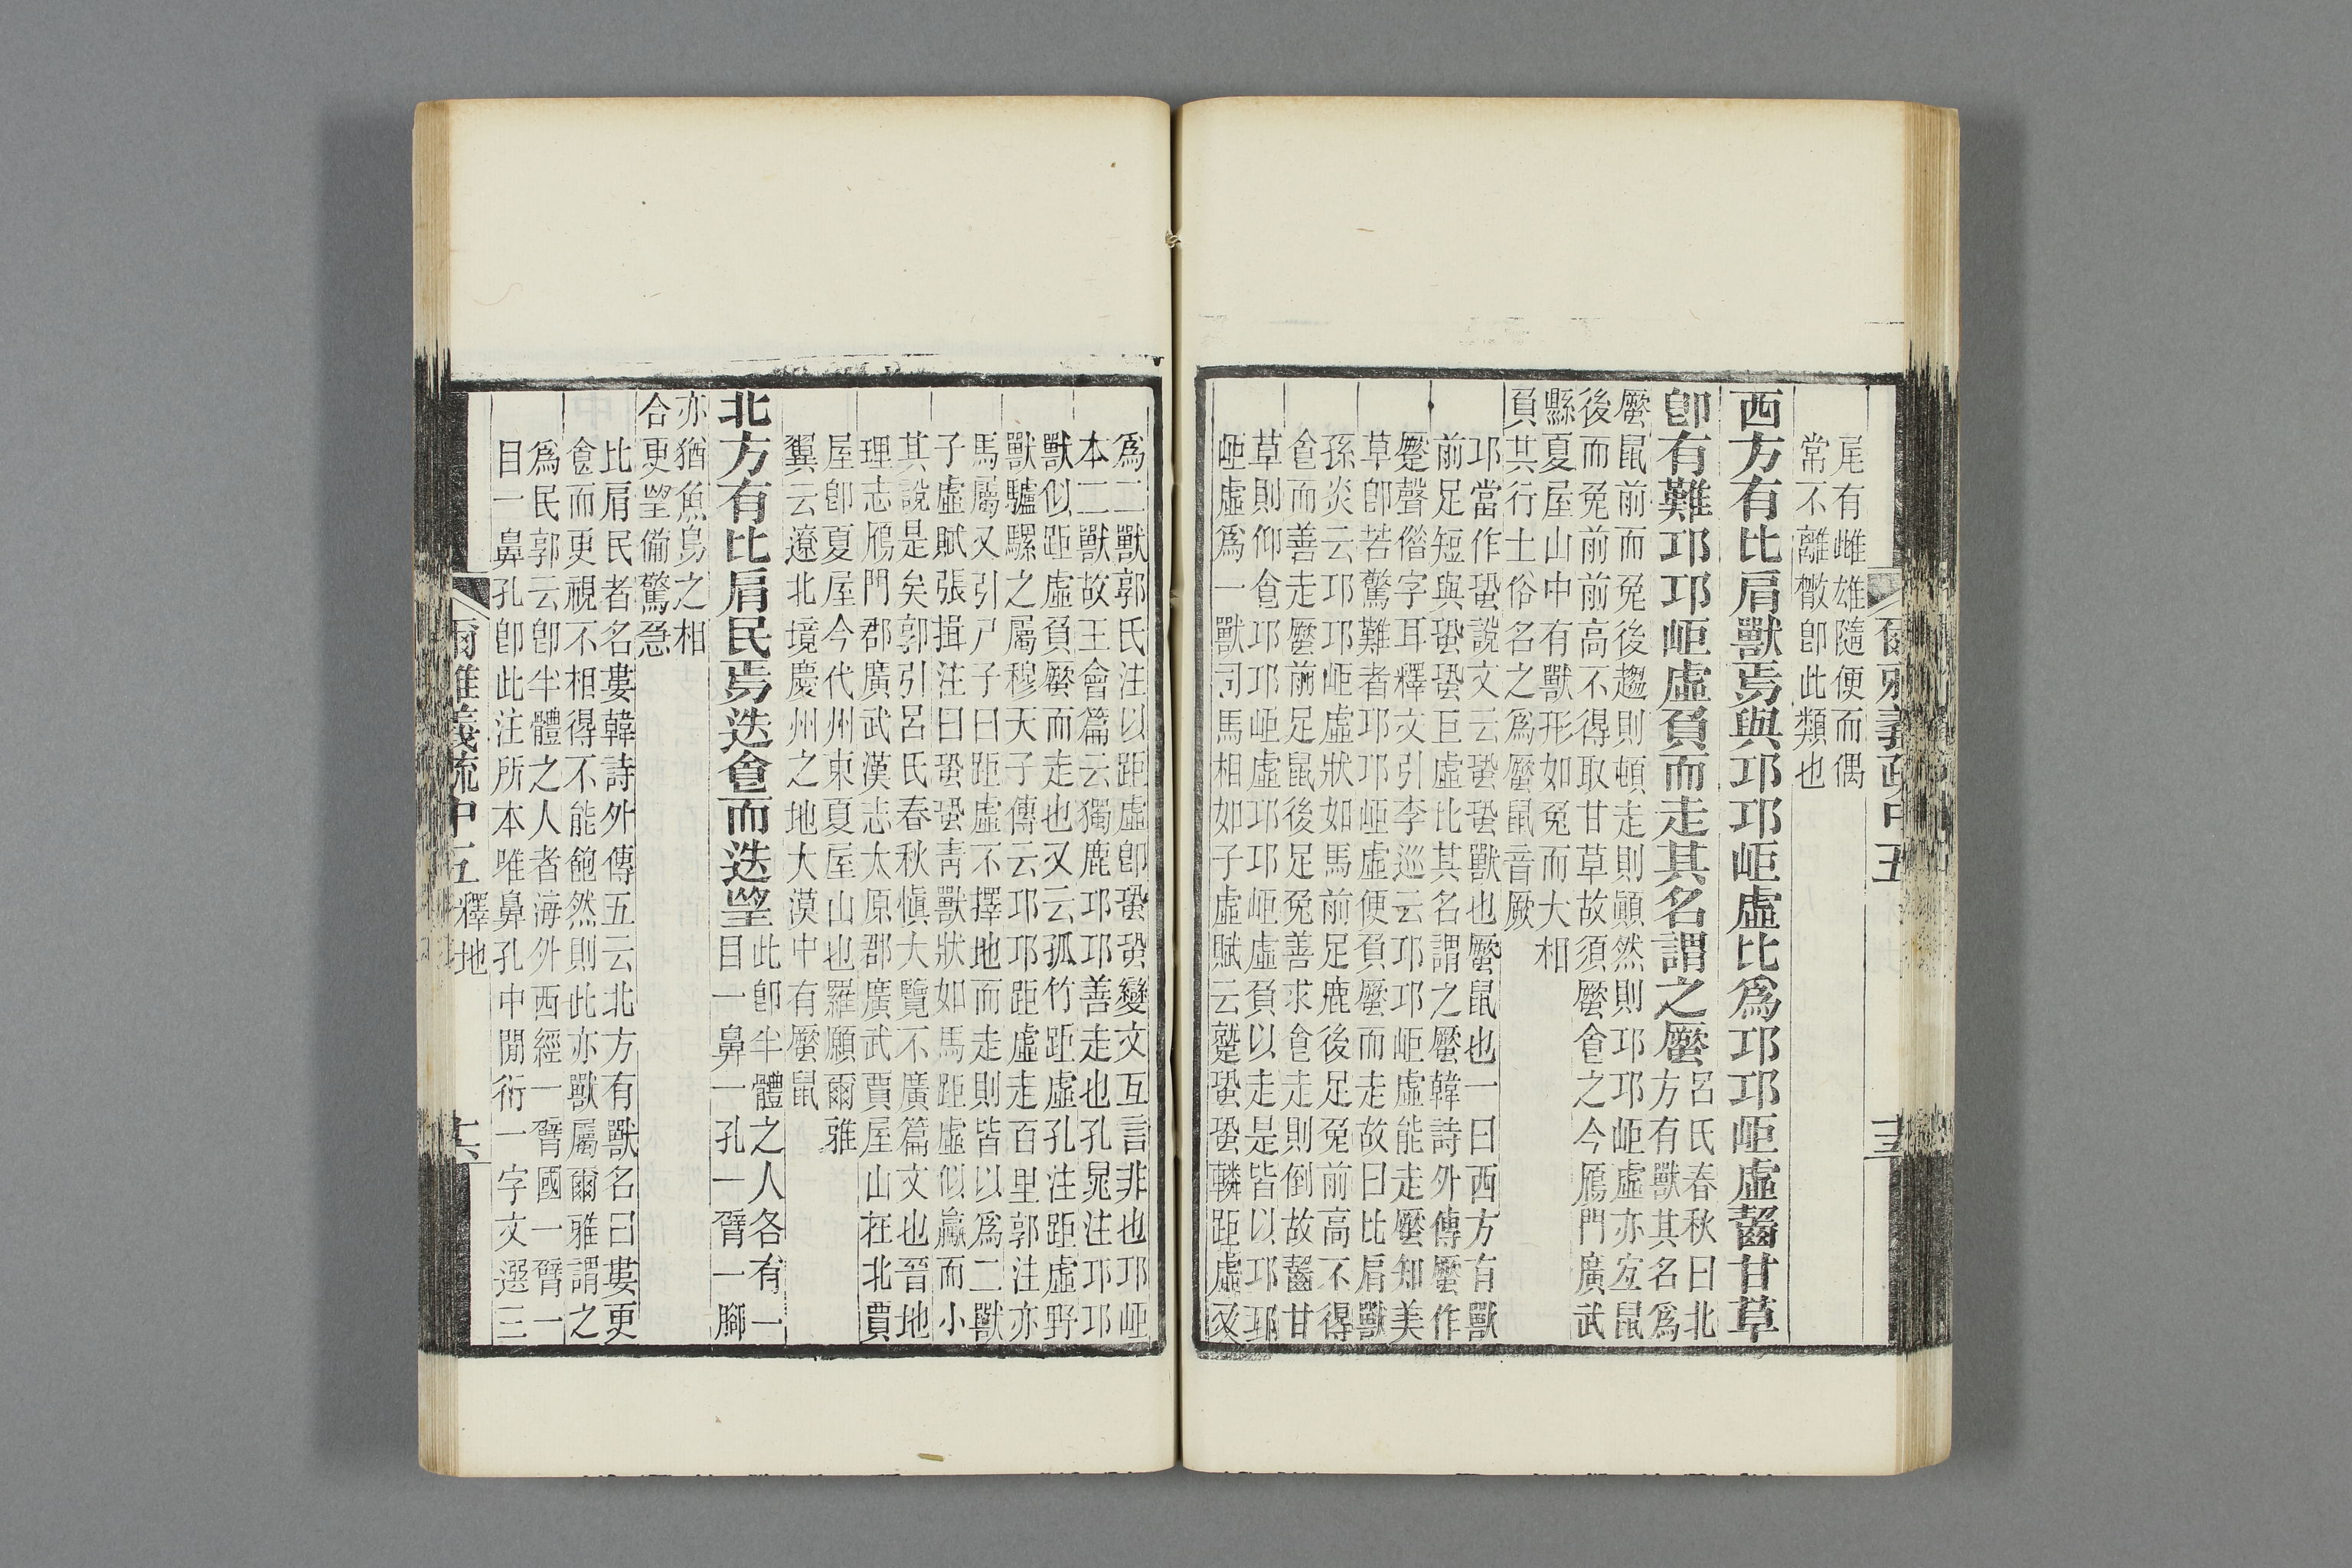 尾有雌雄隨便而偶
常不離散卽此類也
西方有比肩獸焉與邛邛岠虛比爲邛邛岠虛齧甘草
卽有難邛邛岠虛負而走其名謂之蟨
呂氏春秋曰北
方有獸其名爲
蟨鼠前而兔後趨則頓走則顚然則邛邛岠虛亦宐鼠
後而兔前前高不得取甘草故須蟨𩚁之今鴈門廣武
縣夏屋山中有獸形如兔而大相
負其行土俗名之爲蟨鼠音厥
邛當作蛩說文云蛩蛩獸也蟨鼠也一曰西方有獸
前足短與蛩蛩巨虛比其名謂之蟨韓詩外傳蟨作
蹷聲借字耳釋文引李巡云邛邛岠虛能走蟨知美
草卽若驚難者邛邛岠虛便負蟨而走故曰比肩獸
孫炎云邛邛岠虛狀如馬前足鹿後足兔前高不得
𩚁而善走蟨前足鼠後足兔善求𩚁走則倒故齧甘
草則仰𩚁邛邛岠虛邛邛岠虛負以走是皆以邛邛
岠虛爲一獸司馬相如子虛賦云蹵蛩蛩轔距虛又
爾雅義疏中五
爲二獸郭氏注以距虛卽蛩蛩變文互言非也邛岠
本二獸故王會篇云獨鹿邛邛善走也孔晁注邛邛
獸似距虛負蟨而走也又云孤竹距虛孔注距虛野
獸驢騾之屬穆天子傳云邛邛距虛走百里郭注亦
馬屬又引尸子曰距虛不擇地而走則皆以爲二獸
子虛賦張揖注曰蛩蛩靑獸狀如馬距虛似驘而小
其說是矣郭引呂氏春秋愼大覽不廣篇文也晉地
理志鴈門郡廣武漢志太原郡廣武賈屋山在北賈
屋卽夏屋今代州東夏屋山也羅願爾雅
翼云遼北境慶州之地大漠中有蟨鼠
北方有比肩民焉迭𩚁而迭望
此卽半體之人各有一
目一鼻一孔一臂一腳
亦猶魚鳥之相
合更望備驚急
比肩民者名婁韓詩外傳五云北方有獸名曰婁更
𩚁而更視不相得不能飽然則此亦獸屬爾雅謂之
爲民郭云卽半體之人者海外西經一臂國一臂一
目一鼻孔卽此注所本唯鼻孔中閒衍一字文選三
爾雅義疏中五 釋地